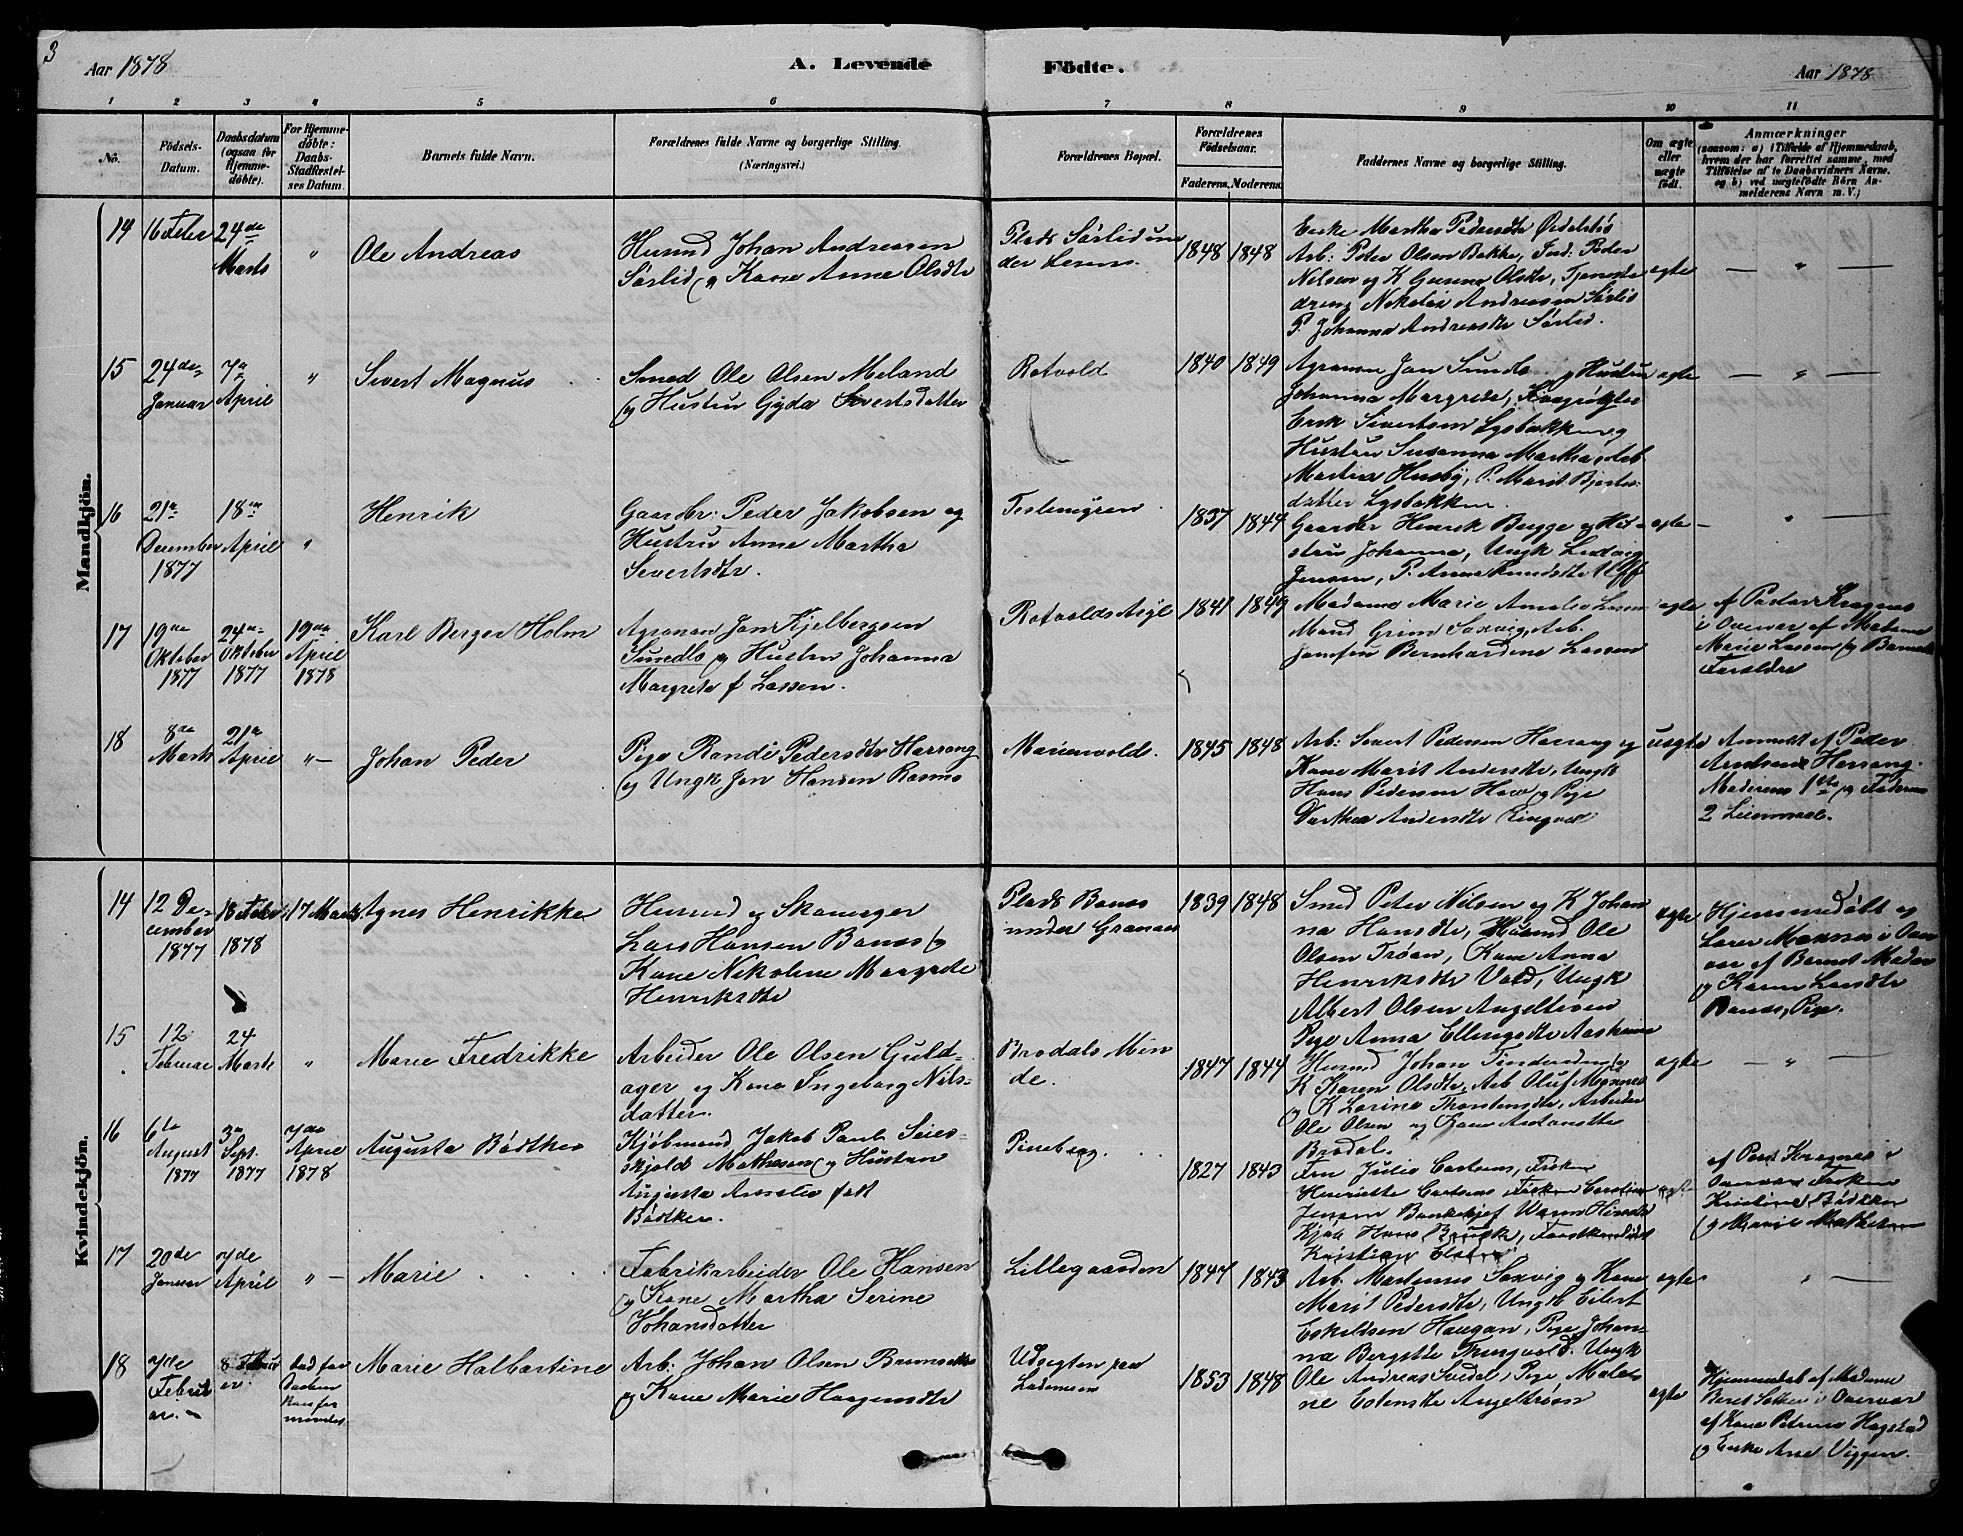 3
Aar 1878
A. Levende
Födte.
Aar 1878
1 2 3 4 5 6 7 8 9 10 11
No.
Födsels-
Datum.
Daabsdatum
(ogsaa for
Hjemme-
döbte).
For Hjemme-
döbte:
Daabs-
Stadfæstel-
ses Datum.
Barnets fulde Navn.
Forældrenes fulde Navne og borgerlige Stilling.
(Næringsvei.)
Forældrenes Bopæl.
Forældrenes
Födselsaar.
Faderens. Moderens.
Faddernes Navne og borgerlige Stilling.
Om ægte
eller
uægte
født.
Anmærkninger
(saasom: a) i Tilfælde af Hjemmedaab,
hvem der har forrettet samme, med
Tilføielse af to Daabsvidners Navne.
og b) ved uægtefödte Börn An-
melderens Navn m. V.)
Mandkjön.
14
16 Febr
24de
Marts
"
Ole Andreas
Husmd Johan Andreasen
Sørlid og Kone Anne Olsdtr
Plads Sørlid un
der Leren
1848
1848
Enke Martha Pedersdtr
Arb: Peter Olsen Bakke, Ind: Peder
Nilsen og K Olsdtr, Tjeneste
dreng Nikolai Andreasen Sørlid
P. Johanna Andreasdtr Sørlid.
ægte
— " —
15
24de
Januar
7de
April
"
Sivert Magnus
Smed Ole Olsen Meland
og Hustru Gyda Sivertsdatter
Rotvold
1840
1849
Agronom Jan Sundlo og Hustru
Johanna Margrete,
Erik Sivertsen Lysbakken og
Hustru Susanna Martha, Arb
Martin Husby, P. Marit
datter Lysbakken
ægte
— " —
16
21de
December
1877
18de
April
"
Henrik
Gaardbr: Peder Jakobsen og
Hustru Anne Martha
Sivertsdtr.
Teslemyren
1837
1844
Gaardbr Henrik Bugge og Hu-
stru Johanna, Ungk Ludvig
Jensen, P. Anna
ægte
" —
17
19de
Oktober
1877
24de
Oktober
1877
19de
April
1878
Karl Berger Holm
Agronom Jan Kjelbergsen
Sundlo og Hustru Johanna
Margrete f Lassen.
Rotvolds Asyl
1841
1849
Madame Marie Amalie Lassen
Mand Grim Saxvig, Arb.
Jomfru Bernhardine Lassen
ægte
af Pastor Kragnes
i Overvær af Madame
Marie Lassen og Barnets
Forældre
18
8de
Marts
21de
April
"—
Johan Peder
Pige Randi Pedersdtr Harrang
og Ungk Jon Hansen Ramo
Marienvold.
1845
1848
Arb: Sivert Pedersen Harrang og
Kone Marit Andersdtr, Ungk
Hans Pedersen How og Pige
Dorthea Andersdtr Ringvæ
uægte
Anmeldt af Peder
Arntsen Harrang.
Moderens 1ste og Faderens
2 Leiermaal.
Kvindekjön.
14
12 De-
cember
1877
18 Febr
1878
17 Marts
Agnes Henrikke
Husmd og Skomager
Lars Hansen Banas og
Kone Nikoline Margrete
Henriksdtr
Plads Banas
under Granaas
1839
1848
Smed Peter Nilsen og K Johan
na Hansdtr, Husmd Ole
Olsen Trøen, Kone Anna
Henriksdtr Vold, Ungk
Albert Olsen Angeltrøen
Pige Anna Ellingsdtr Aasheim
ægte
Hjemmedøbt og
Lærer Moxnes i Over
vær af Barnets Moder
og Karen Larsdtr
Banas, Pige.
15
12
Februar
24
Marts
"
Marie Fredrikke
Arbeider Ole Olsen Guld-
ager og Kone Ingeborg Nils-
datter.
Brodals Min
de.
1847
1844
Husmd Johan
K Karen Olsdtr, Arb Oluf Moxnes
og K Lorina Thorstensdtr, Arbeider
Ole Olsen og Kone
Brodal.
ægte
— " —
16
6te
August
1877
3de
Sept.
1877
7de
April
1878
Augusta Bödtker
Kjøbmand Jakob Paul Seies-
skjold Mathesen og Hustru
Augusta Amalie født
Bödtker.
Pineberg
1827
1843
Fru Julie Carlsens, Frøken
Henriette Carlsens
Jensen Bankchef
Kjøb Hans, Forstkandidat
Kristian
af Past Kragnes i
Overvær Frøken
Kristine Bödtker
og Marie Mathesen
17
20de
Januar
7de
April
"—
Marie
Fabrikarbeider Ole Hansen
og Kone Martha Serine
Johansdatter
Lillegaarden
1847
1843
Arb. Martinus Saxvig og Kone
Marit Pedersdtr, Ungk Eilert
Eskildsen Haugan, Pige Johan-
na Bergitte Ungk
ægte
" —
18
7de
Febru
ar.
8 Febru
ar.
Marie Halbartine
Arb: Johan Olsen
og Kone Marie Haagensdtr
Udsigten paa
Lademoen
1853
1848
Ole Andreas Svedal, Pige
ne Estensdtr Angeltrøen
ægte
Hjemmedøbt af Madame
Beret i Overvær
af Kone Petrine Hagstad
og Enke Ane Viggen.